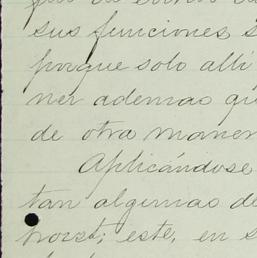 sus funciones s
porque solo alli
ner ademas qu
de otra maner
Aplicándose
tan algunas de
este, en s